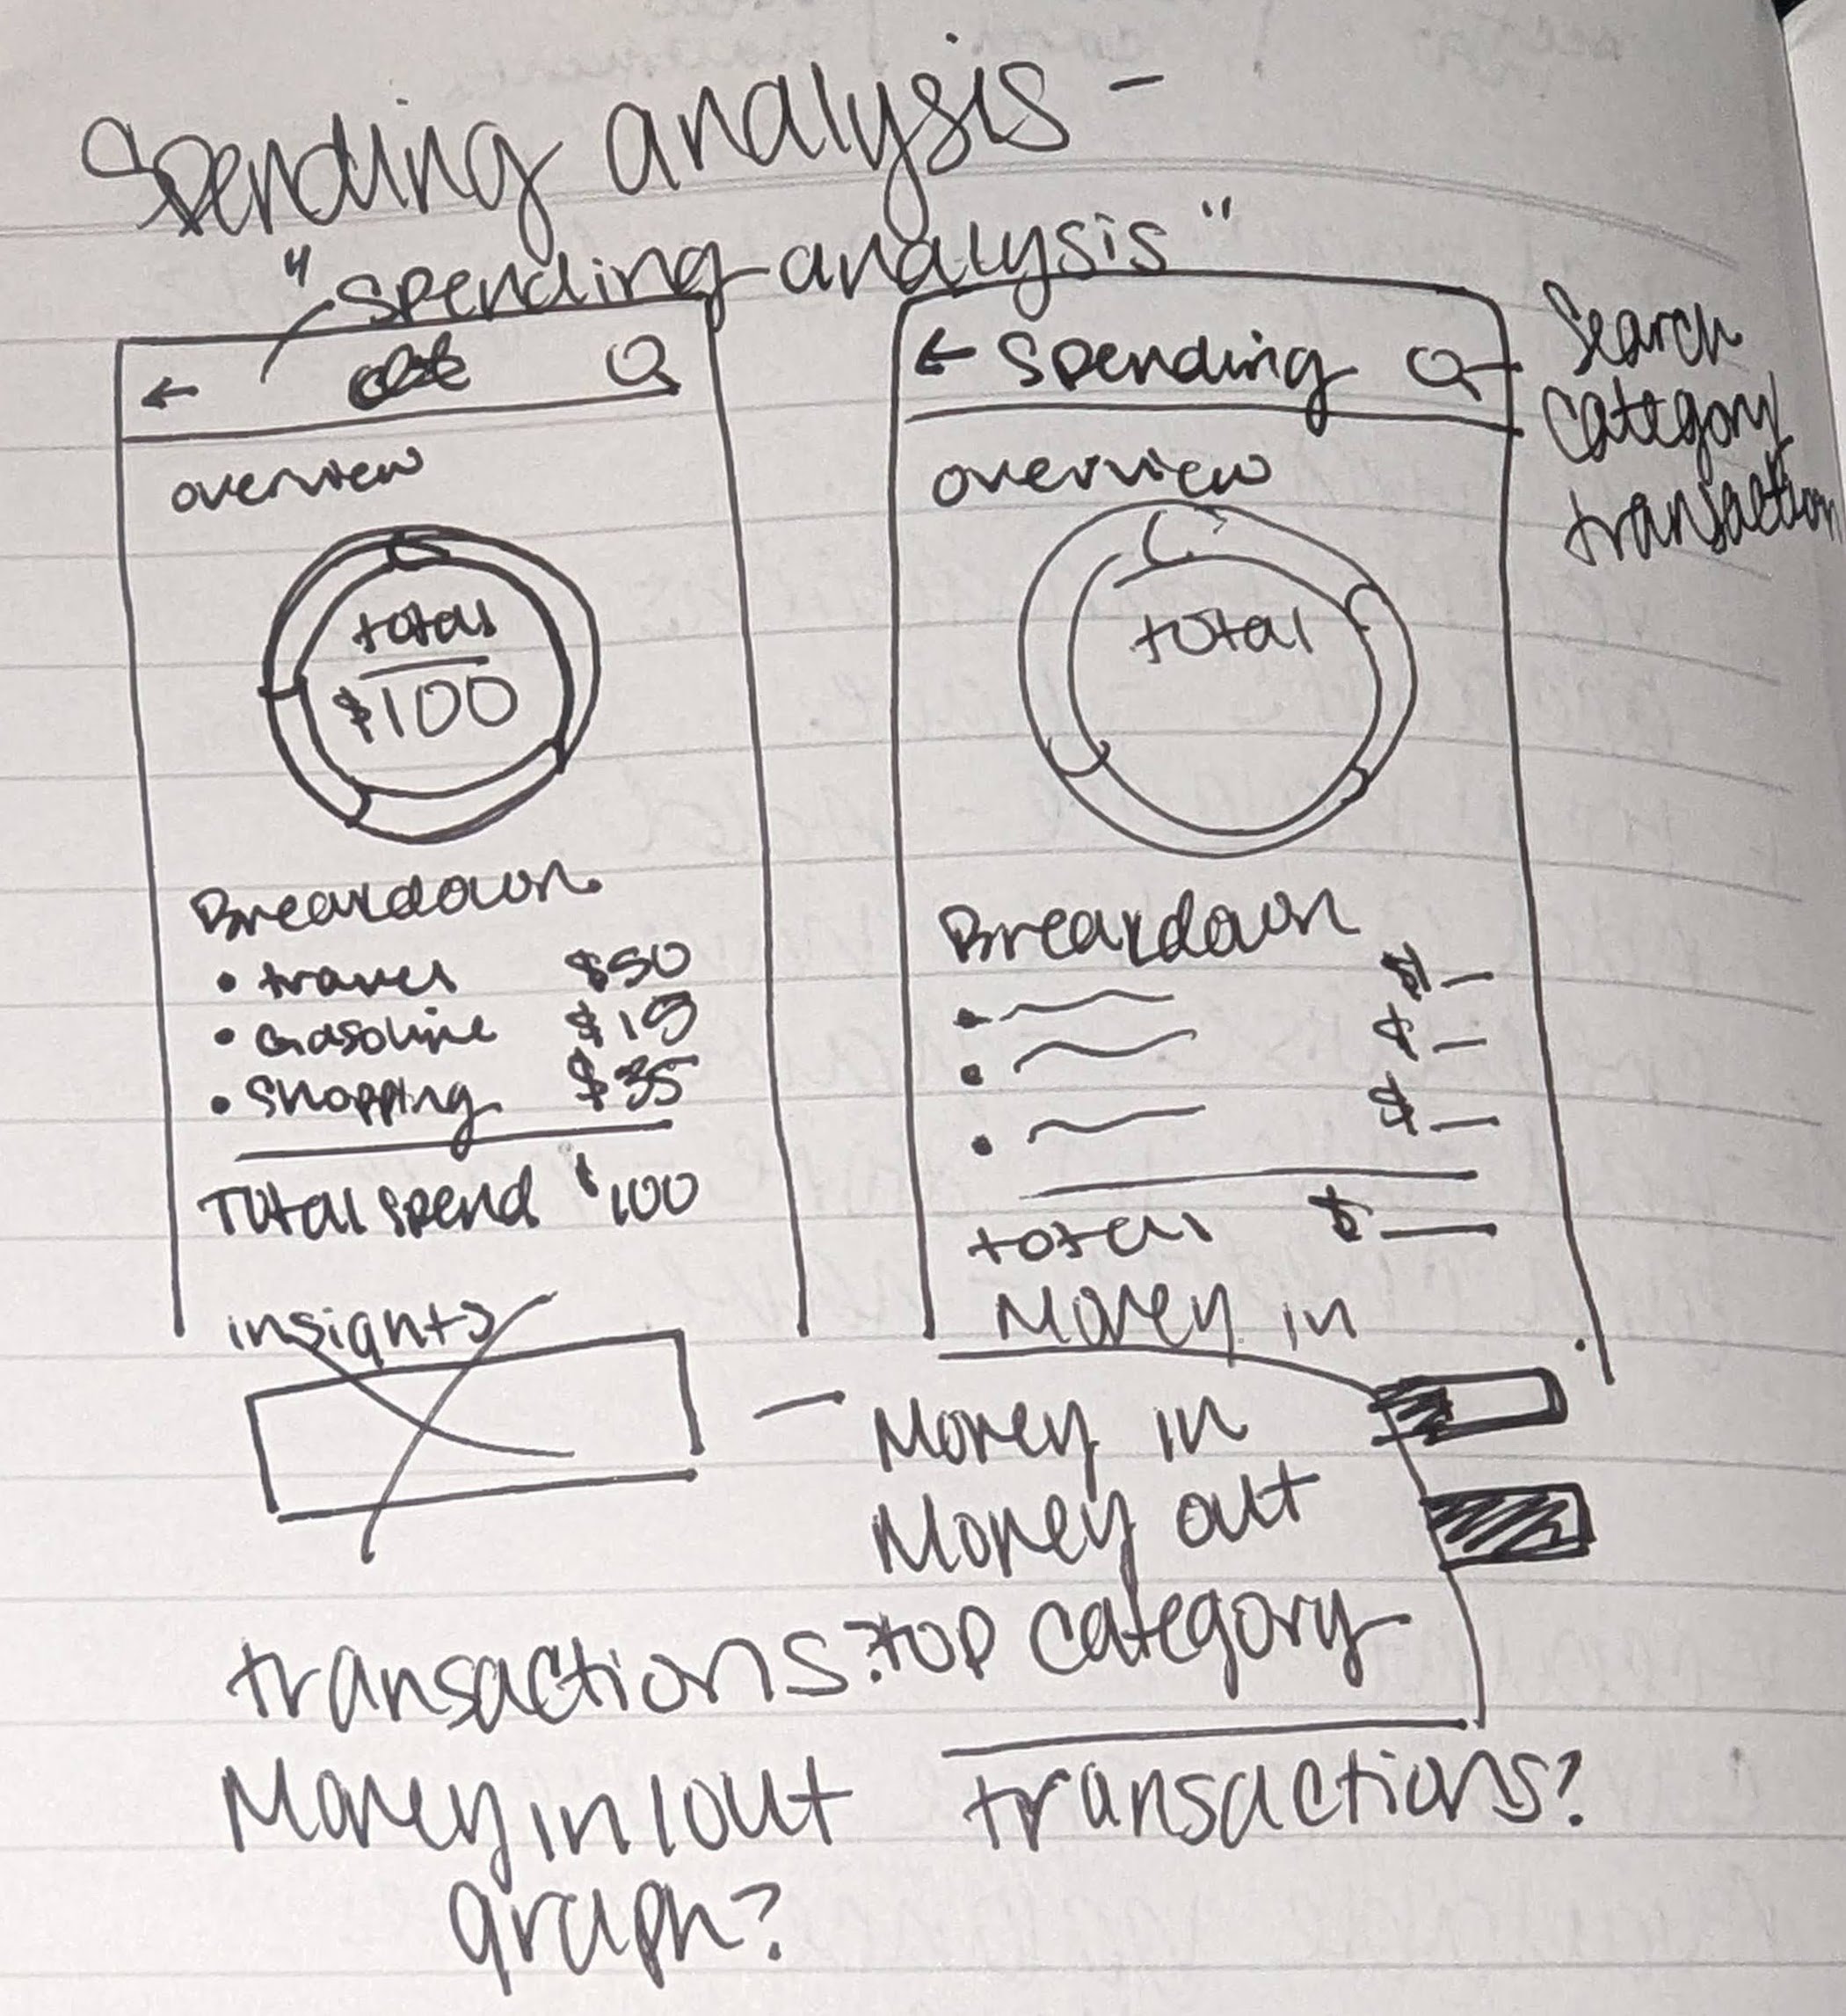 Spending analysis -
"spending analysis"
overview
total
$100
Breakdown
• travel $50
• Gasoline $15
• Shopping $35
Total spend $100
insights
← Spending
Search
category
transaction
overview
total
Breakdown
• $—
• $—
• $—
total $—
Money in
— Money in
Money out
top category
transactions?
transactions?
Money in/out
graph?